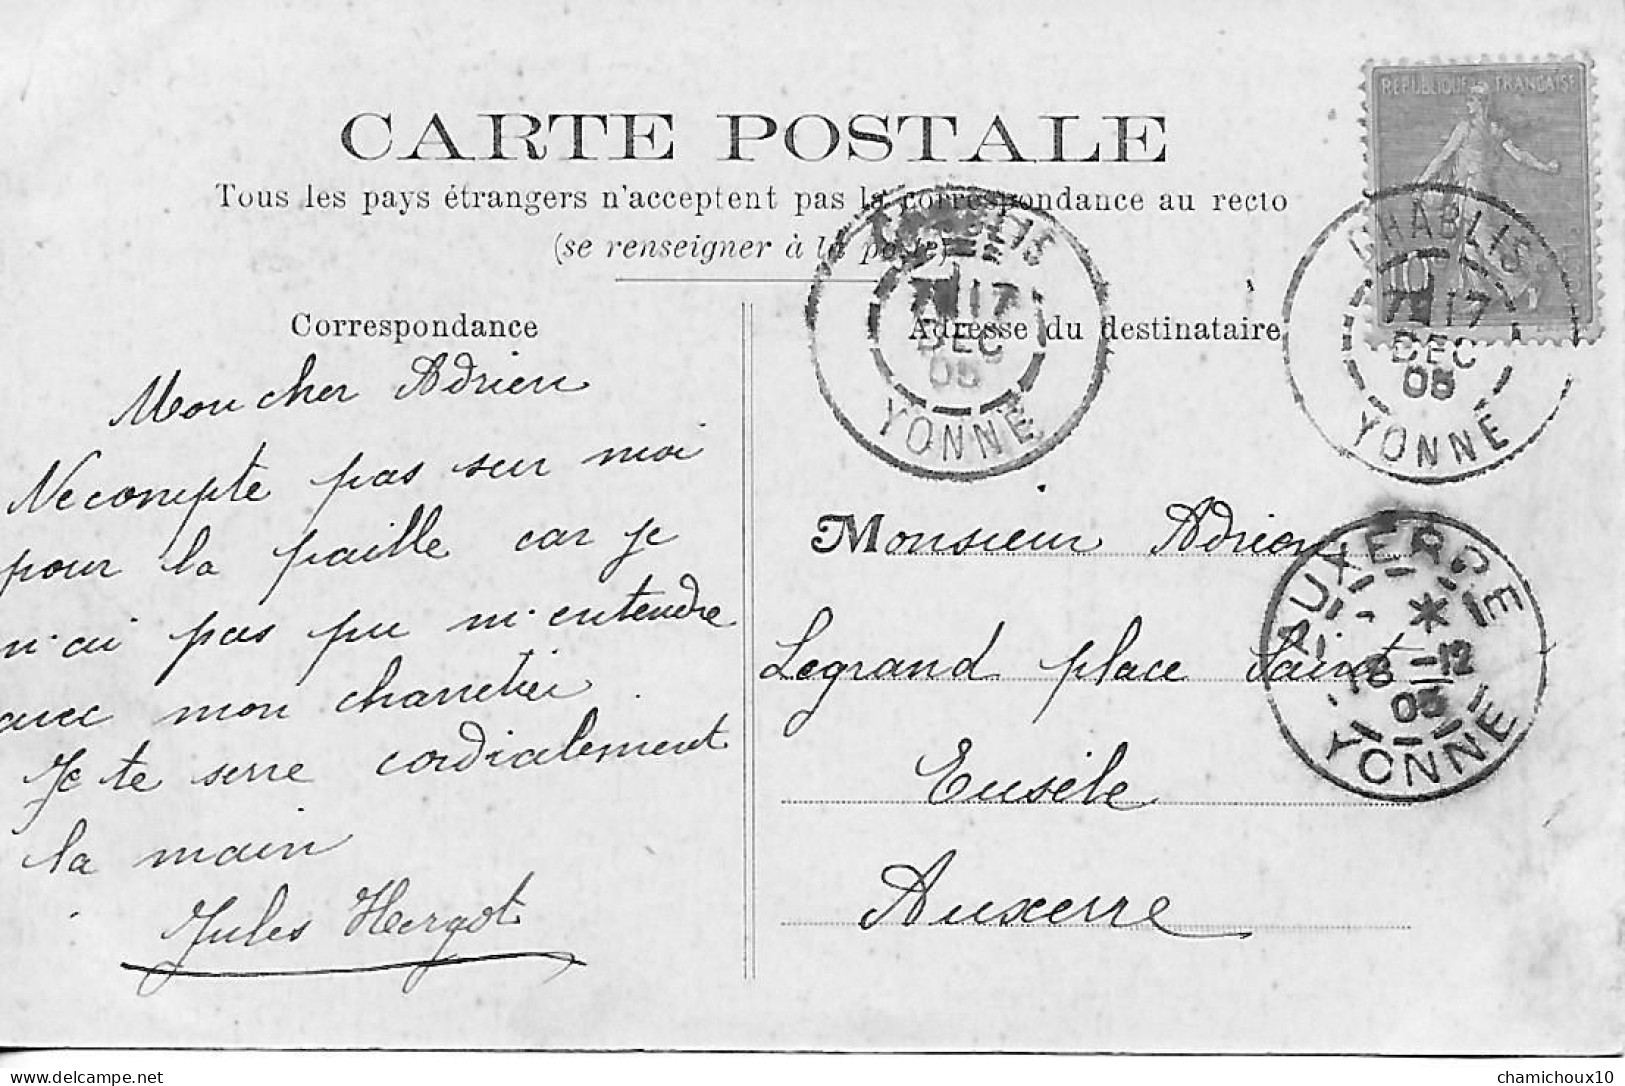 RÉPUBLIQUE FRANÇAISE
10
CARTE POSTALE
Tous les pays étrangers n'acceptent pas la correspondance au recto
(se renseigner à la poste)
CHABLIS
17
DEC
05
YONNE
CHABLIS
17
DEC
05
YONNE
Correspondance
Mon cher Adrien
Ne compte pas sur moi
pour la paille car je
n'ai pas pu m'entendre
avec mon charretier.
Je te serre cordialement
la main
Jules Hergot
Adresse du destinataire
Monsieur Adrien
Legrand place Saint
Eusèbe
Auxerre
AUXERRE
18-12
05
YONNE
delcampe.net
chamichoux10